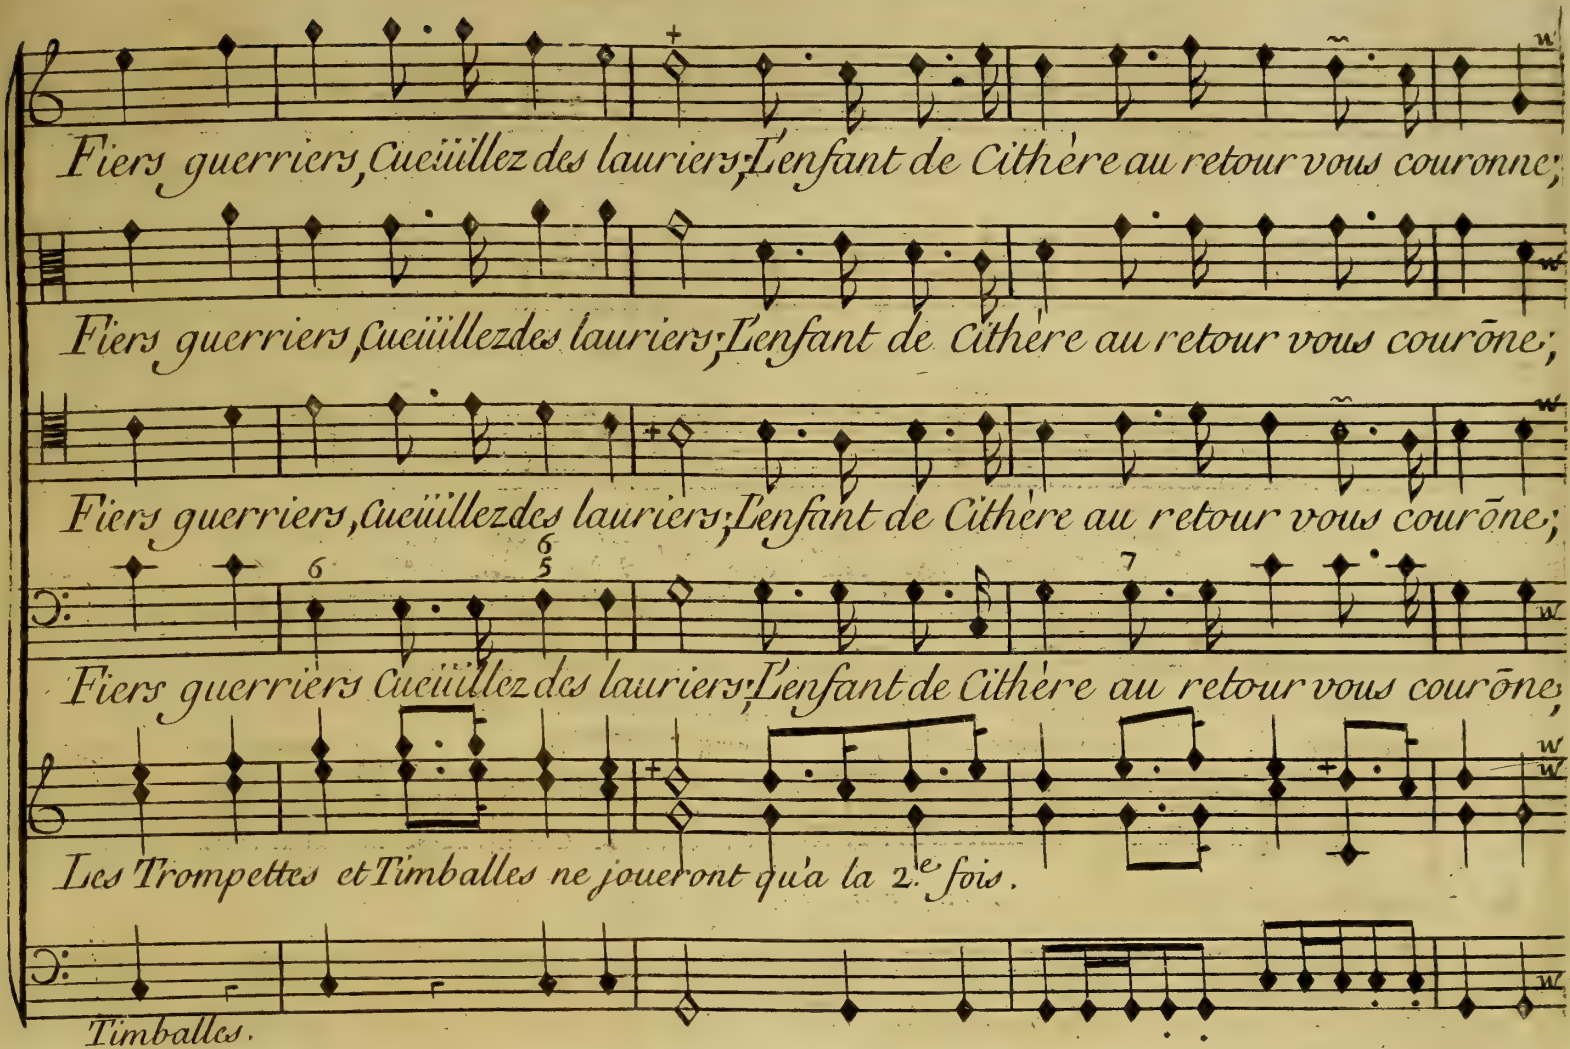 Fiers guerriers, Cueüillez des lauriers; L'enfant de Cithère au retour vous couronne;
Fiers guerriers, Cueüillez des lauriers; L'enfant de Cithère au retour vous courōne;
Fiers guerriers, Cueüillez des lauriers; L'enfant de Cithère au retour vous courōne;
6 6 5 7
Fiers guerriers Cueüillez des lauriers; L'enfant de Cithère au retour vous courōne;
Les Trompettes et Timballes ne joueront qu'a la 2.e fois.
Timballes.